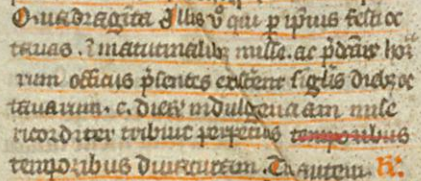 Quadragīta Illis v̄o qui p ip̄ius festi oc
tauas. ī matutinalib; misse. ac p̄dcārū hoꝝ
rum officiis p̄sentes extiterīt sīglis dieb; oc
tauarum. c. dierū indulgenciam mise
ricorditer tribuit perpetuis temporibus
temporibus duraturam. Tu autem. R̄.